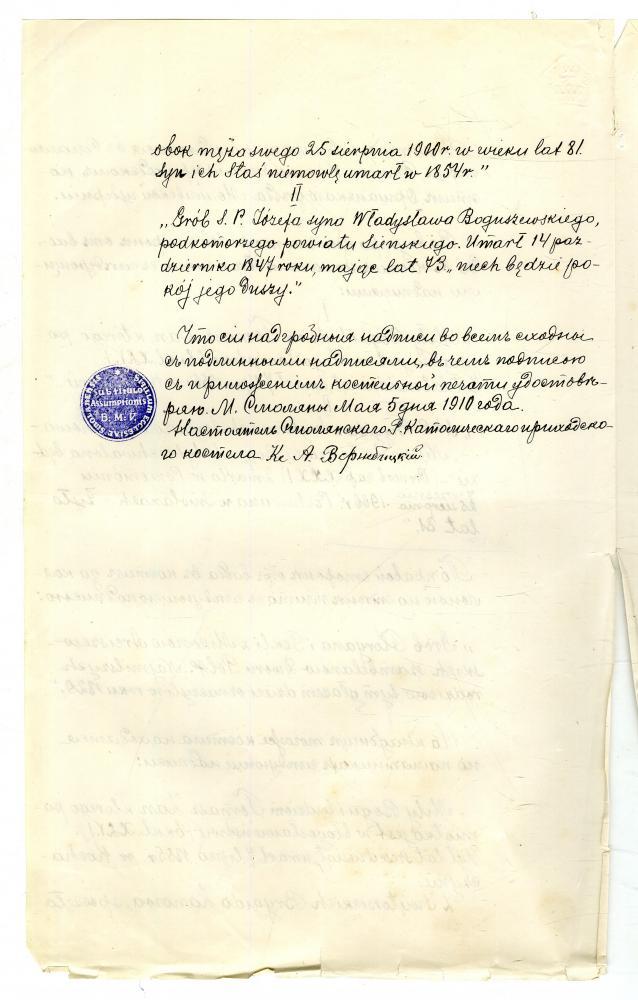 obok męża swego 25 sierpnia 1900 r. w wieku lat 81.
Syn ich Staś niemowlę umarł w 1854 r."
II
„Grób S. P. Józefa syna Władysława Boguszewskiego,
podkomorzego powiatu Sieńskiego. Umarł 14 paz-
dziernika 1847 roku, mając lat 73 „niech będzie po-
kój jego Duszy."
Что сіи надгробныя надписи во всемъ сходны
съ подлинными надписями, въ чемъ подписою
съ приложеніемъ костельной печати удостовѣ-
ряю. М. Смоляны Мая 5 дня 1910 года.
Настоятель Смолянскаго Р. Католическаго приходска-
го костела Кс А.
Sub titulo
Assumptionis
B. M. V.